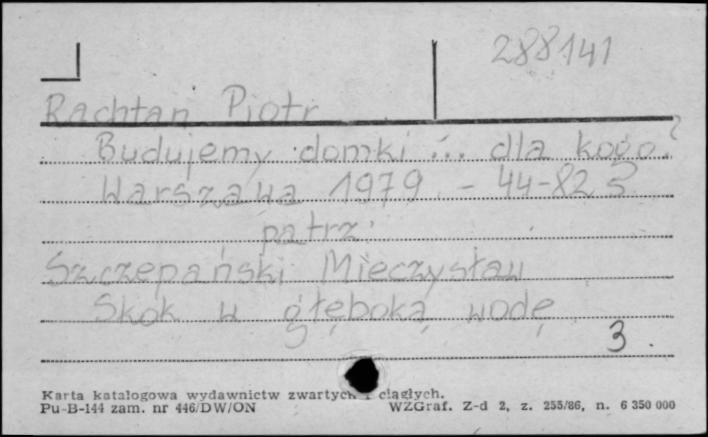 288141
Rachtan Piotr
Budujemy domki ... dla kogo?
Warszawa 1979 - 44-82 s
patrz:
Szczepański Mieczysław
Skok w głęboką wodę
3.
Karta katalogowa wydawnictw zwartych i ciągłych.
Pu-B-144 zam. nr 446/DW/ON WZGraf. Z-d 2, z. 255/86, n. 6 350 000